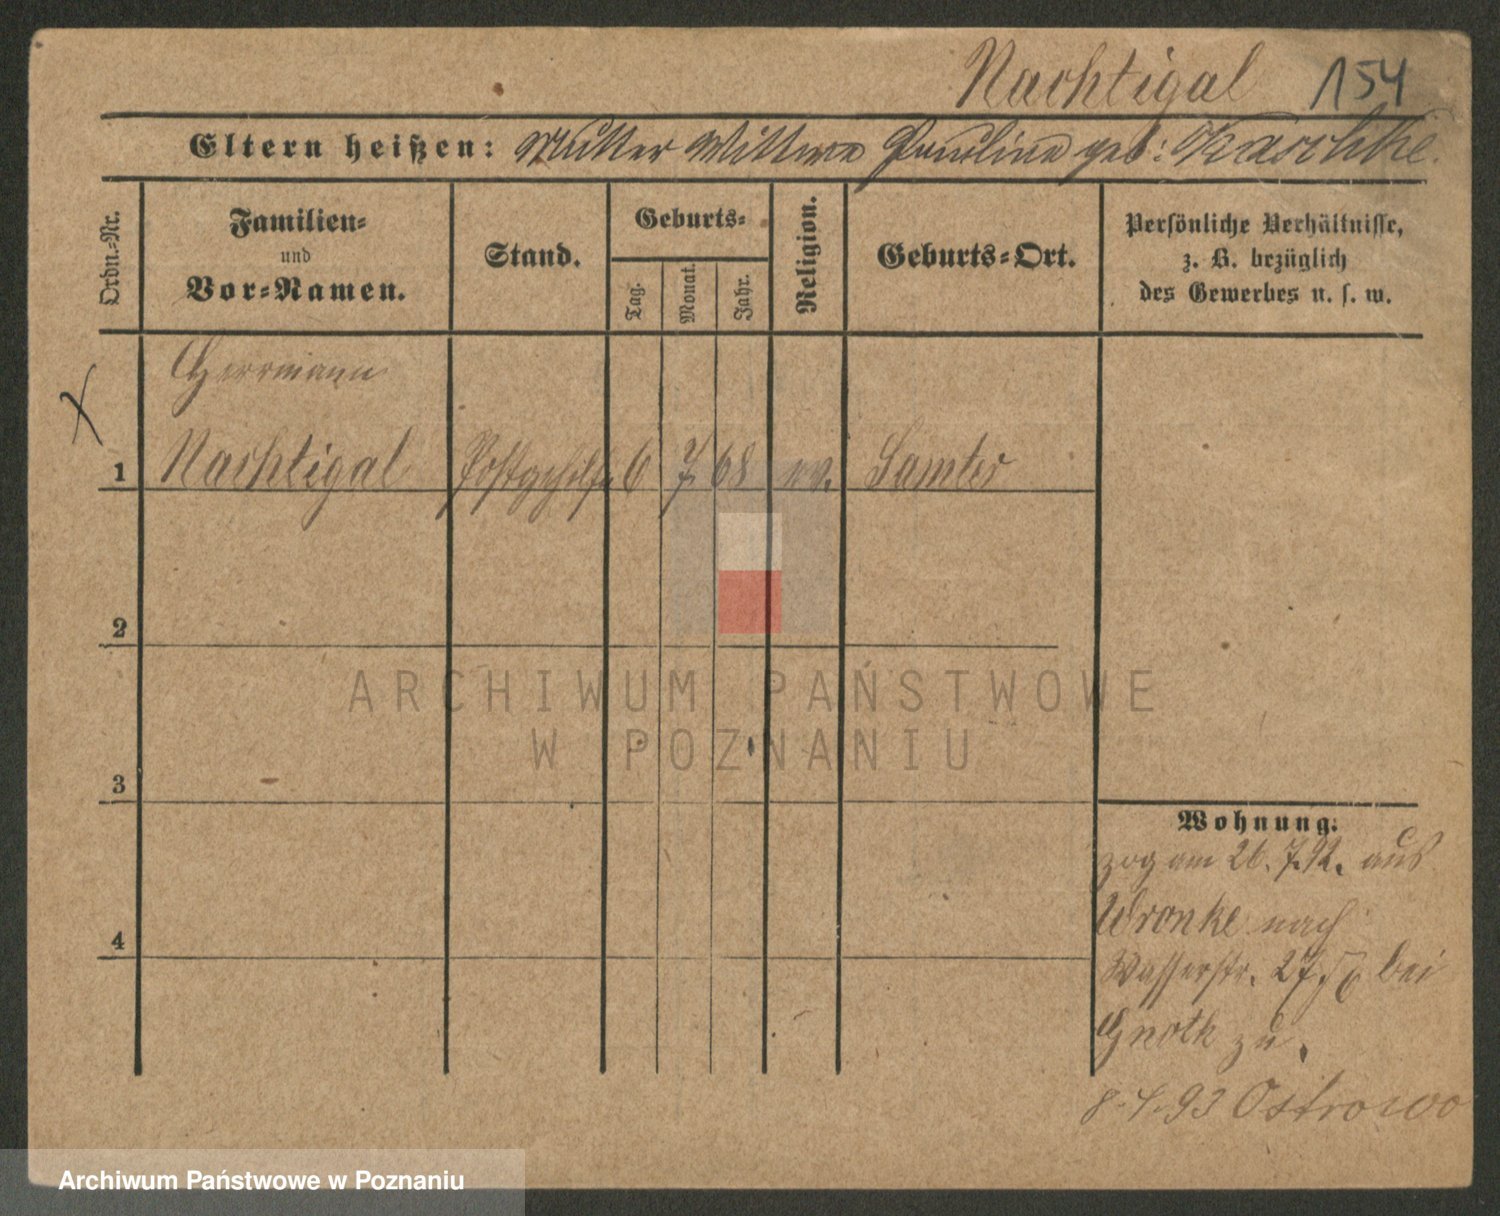 Nachtigal 154
Eltern heißen: Mutter Wittwe Pauline geb: Kaschke.
Ordn.-Nr.
Familien-
und
Vor-Namen.
Stand.
Geburts-
Tag.
Monat.
Jahr.
Religion.
Geburts-Ort.
Persönliche Verhältnisse,
z. B. bezüglich
des Gewerbes u. s. w.
Herrmann
1 Nachtigal Postgehilfe 6 7 68 ev. Samter
2
ARCHIWUM PAŃSTWOWE
W POZNANIU
3
Wohnung.
zog am 26. 7. 92. aus
Wronke nach
4
Wasserstr. 27 bei
Gnoth zu.
93 Ostrowo
Archiwum Państwowe w Poznaniu